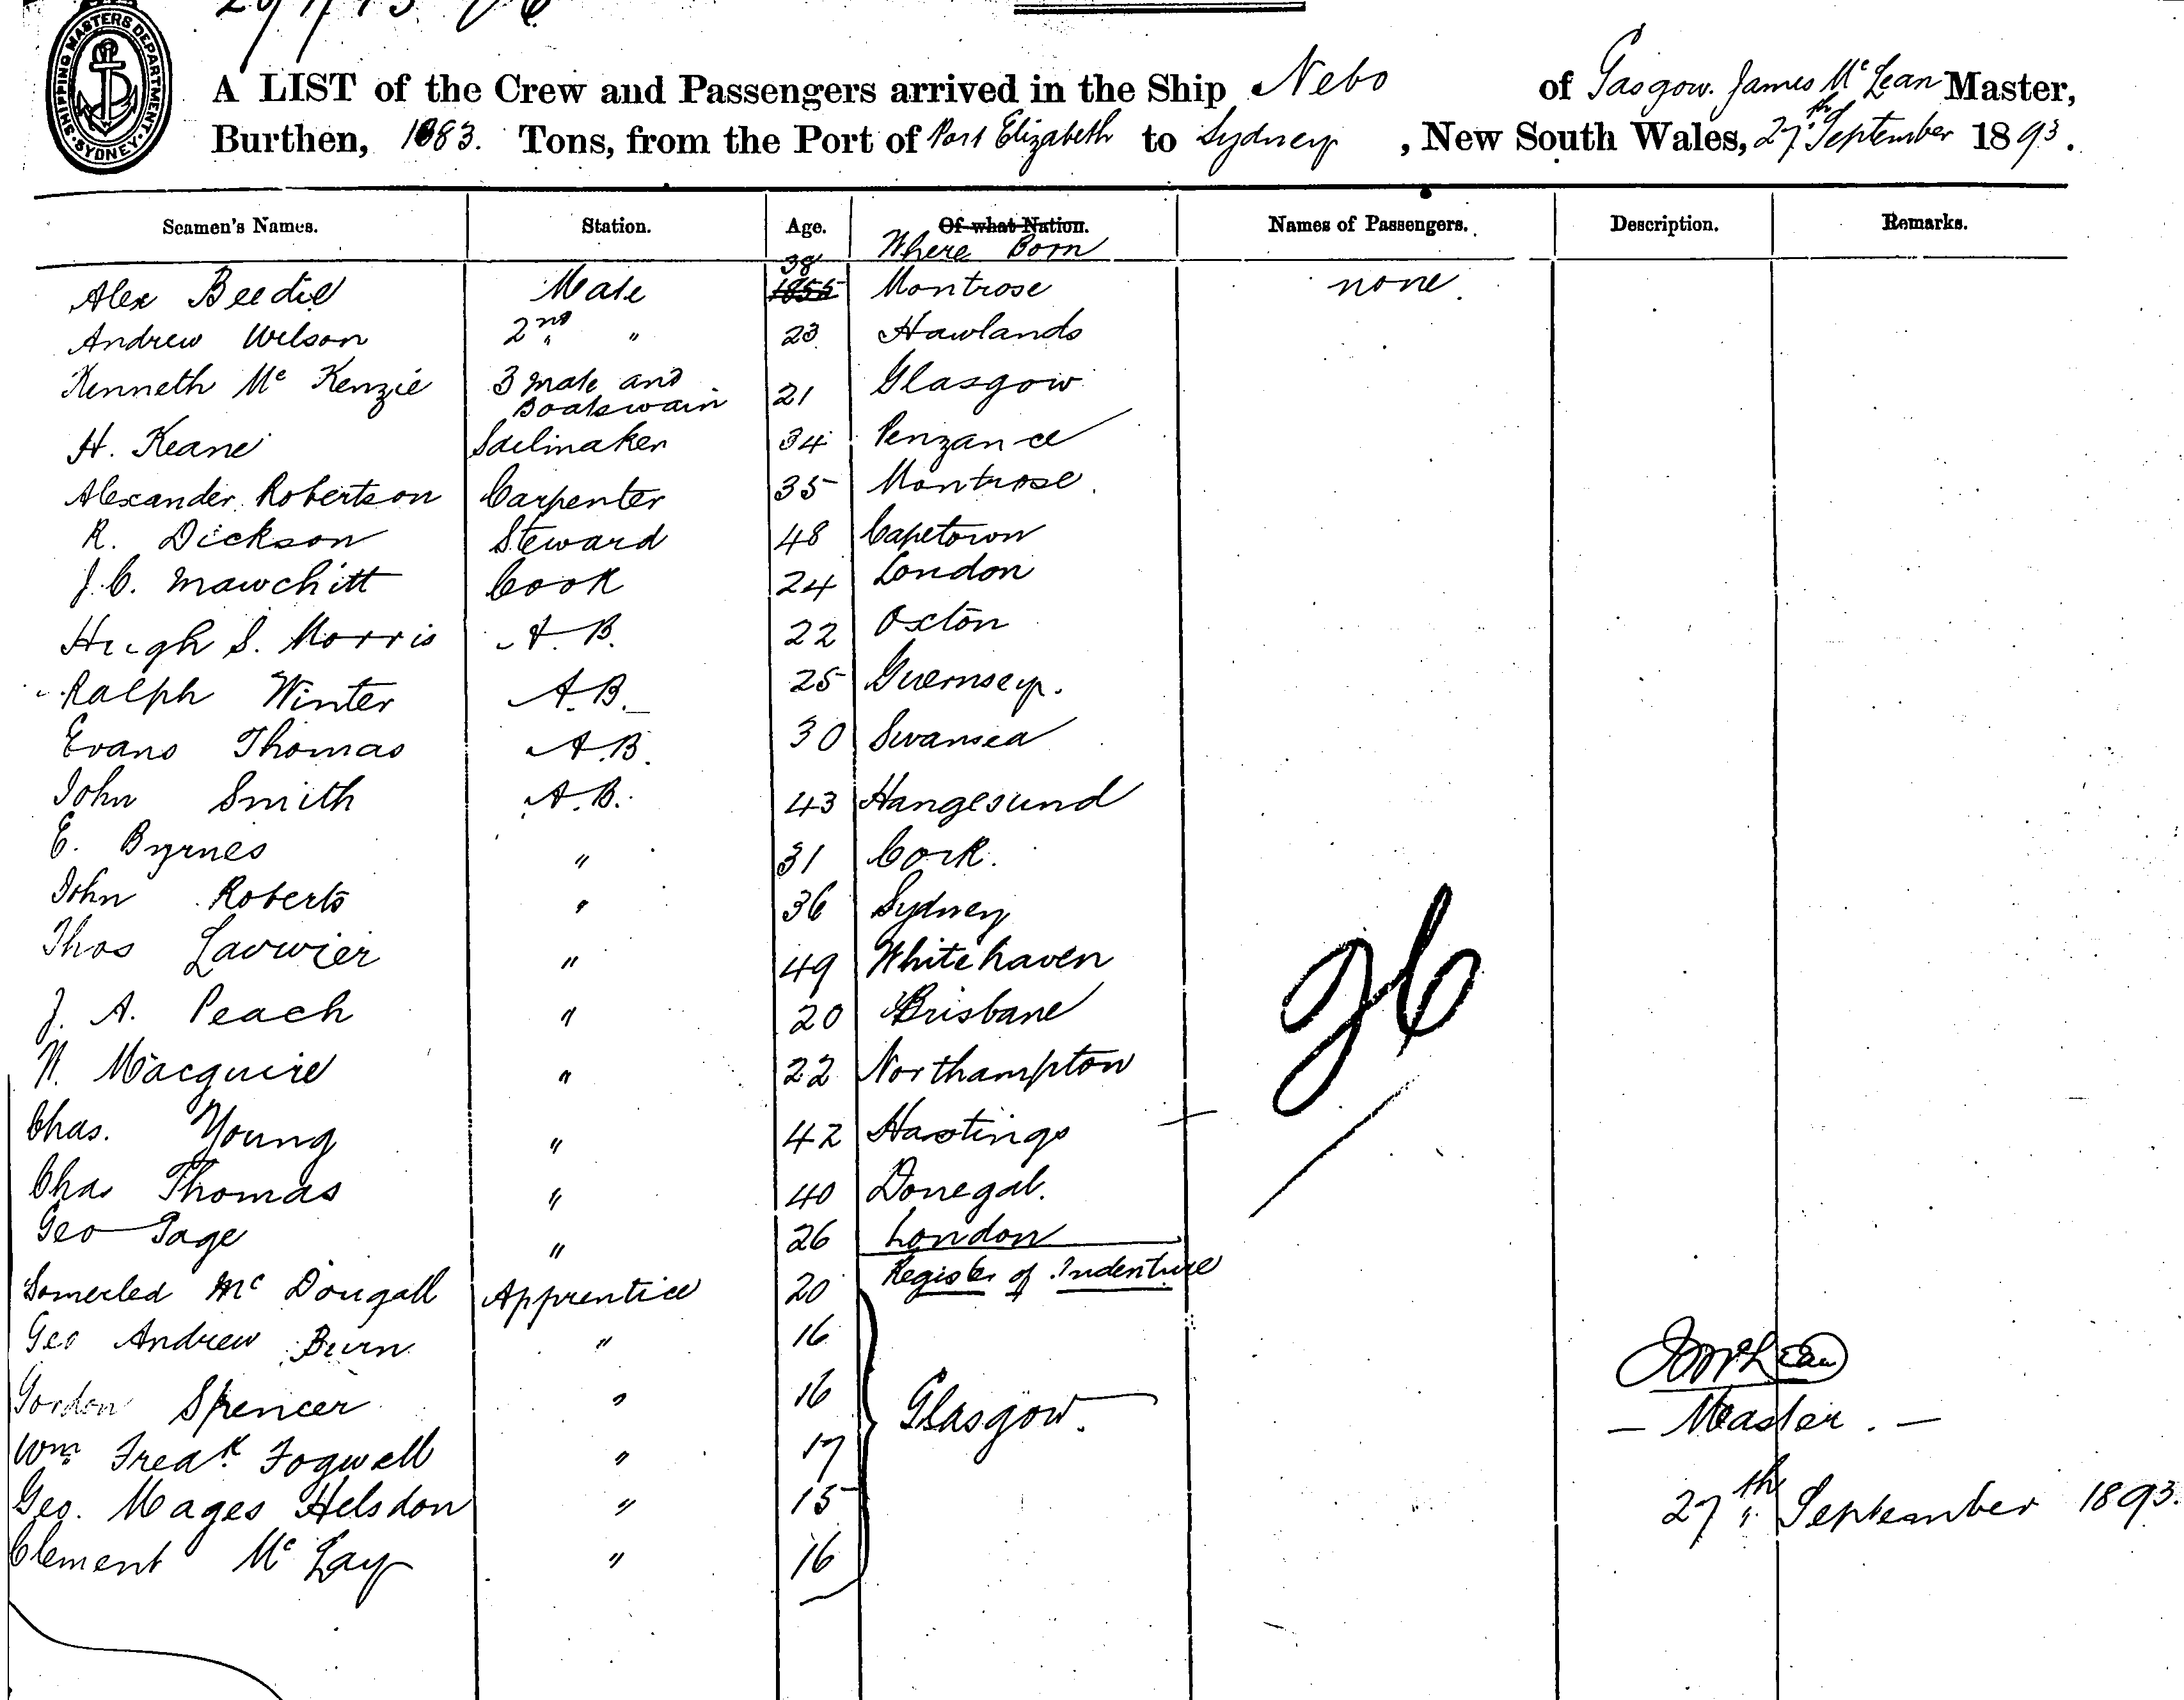 SHIPPING MASTERS DEPARTMENT. SYDNEY.
A LIST of the Crew and Passengers arrived in the Ship Nebo of Gasgow. James McLean Master,
Burthen, 1083. Tons, from the Port of Port Elizabeth to Sydney, New South Wales, 27th September 1893.
Seamen's Names. Station. Age. Of what Nation. Names of Passengers. Description. Remarks.
Where Born
Alex Beedie Mate 38 1855 Montrose none.
Andrew Wilson 2nd " 23 Hawlands
Kenneth Mc Kenzie 3 mate and Boatswain 21 Glasgow
H. Keane Sailmaker 34 Penzance
Alexander Robertson Carpenter 35 Montrose.
R. Dickson Steward 48 Capetown
J.C. Mawchitt Cook 24 London
Hugh S. Morris A.B. 22 Oxton
Ralph Winter A.B. 25 Guernsey.
Evans Thomas A.B. 30 Swansea
John Smith A.B. 43 Hangesund
E. Byrnes " 31 Cork.
John Roberts " 36 Sydney
Thos " 49 Whitehaven
J. A. Peach " 20 Brisbane
N. Macguire " 22 Northampton
Chas. Young " 42 Hastings
Chas Thomas " 40 Donegal.
Geo Page " 26 London
Somerled Mc Dougall Apprentice 20 Register of Indenture
Geo Andrew Burn " 16
Gordon Spencer " 16 Glasgow.
Wm Fredk Fogwell " 17
Geo. Mages Helsdon " 15
Clement Mc Lay " 16
J McLean
- Master. -
27th September 1893.